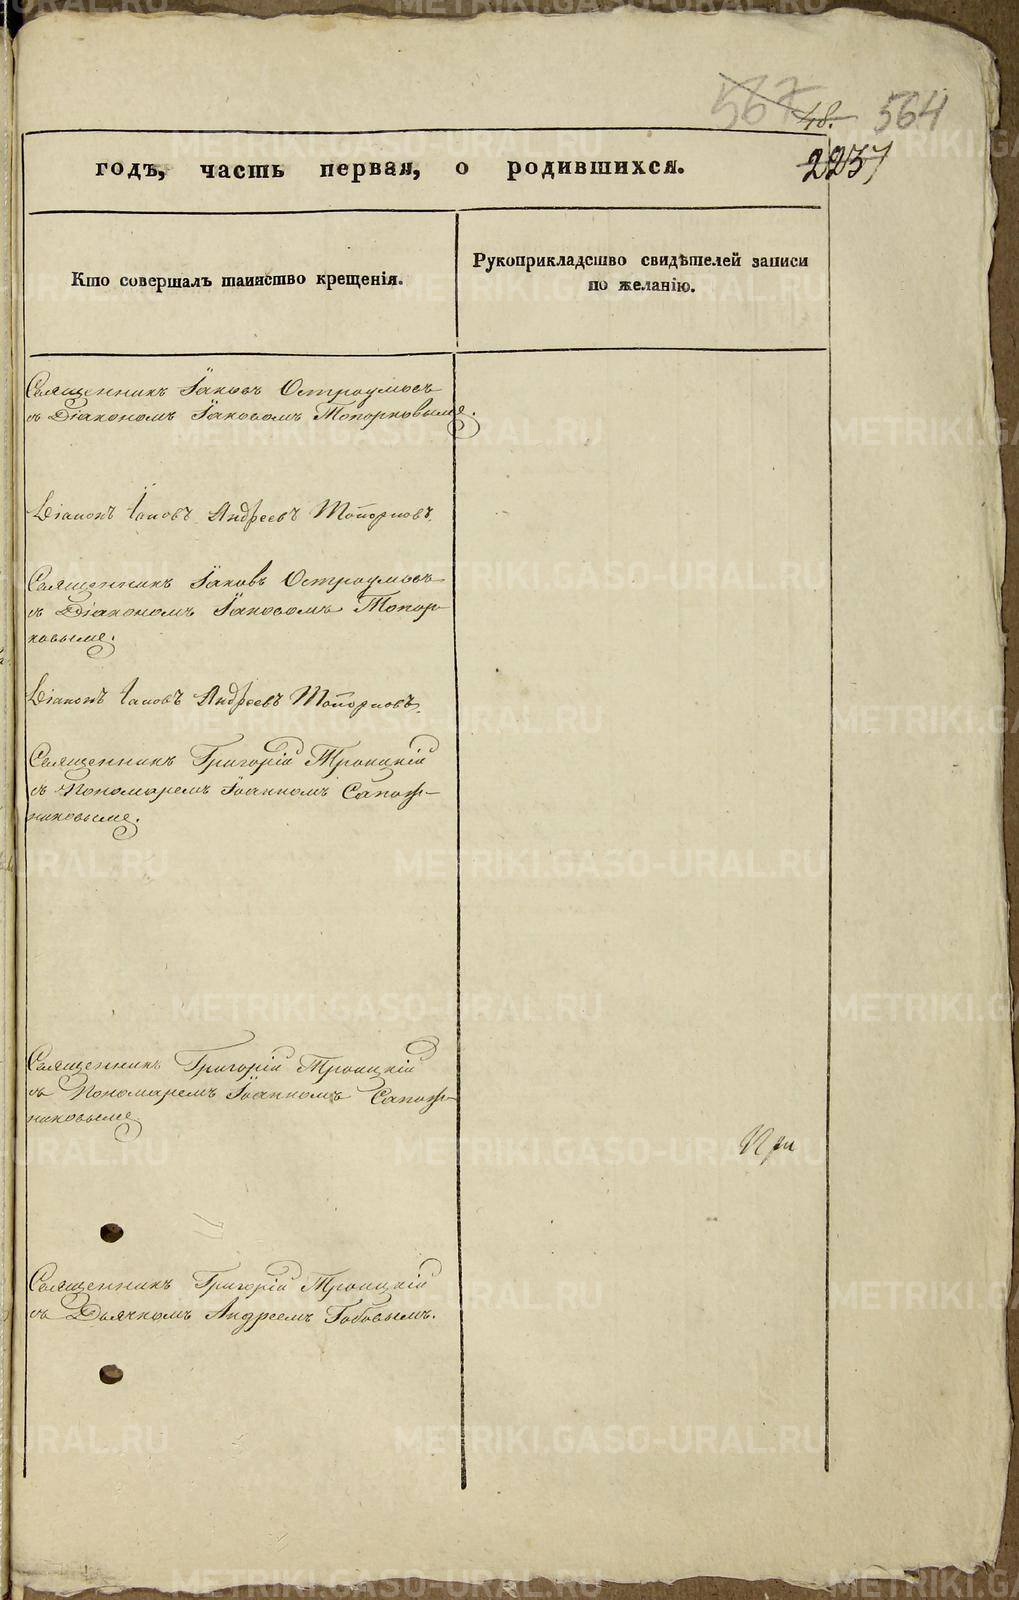 567 48. 564
2237
годъ, часть первая, о родившихся.
Кто совершалъ таинство крещенія.
Рукоприкладство свидѣтелей записи
по желанію.
Священникъ Іаковъ Остроумовъ
съ Діакономъ Іаковомъ Топорковымъ.
Діаконъ Іаковъ Андреевъ Топорковъ.
Священникъ Іаковъ Остроумовъ
съ Діакономъ Іаковомъ Топор-
ковымъ.
Діаконъ Іаковъ Андреевъ Топорковъ.
Священникъ Григорій Троицкій
съ Пономаремъ Іоанномъ Сапож-
никовымъ.
Священникъ Григорій Троицкій
съ Пономаремъ Іоанномъ Сапож-
никовымъ
При
Священникъ Григорій Троицкій
съ Дьячкомъ Андреемъ Бобовымъ.
METRIKI.GASO-URAL.RU